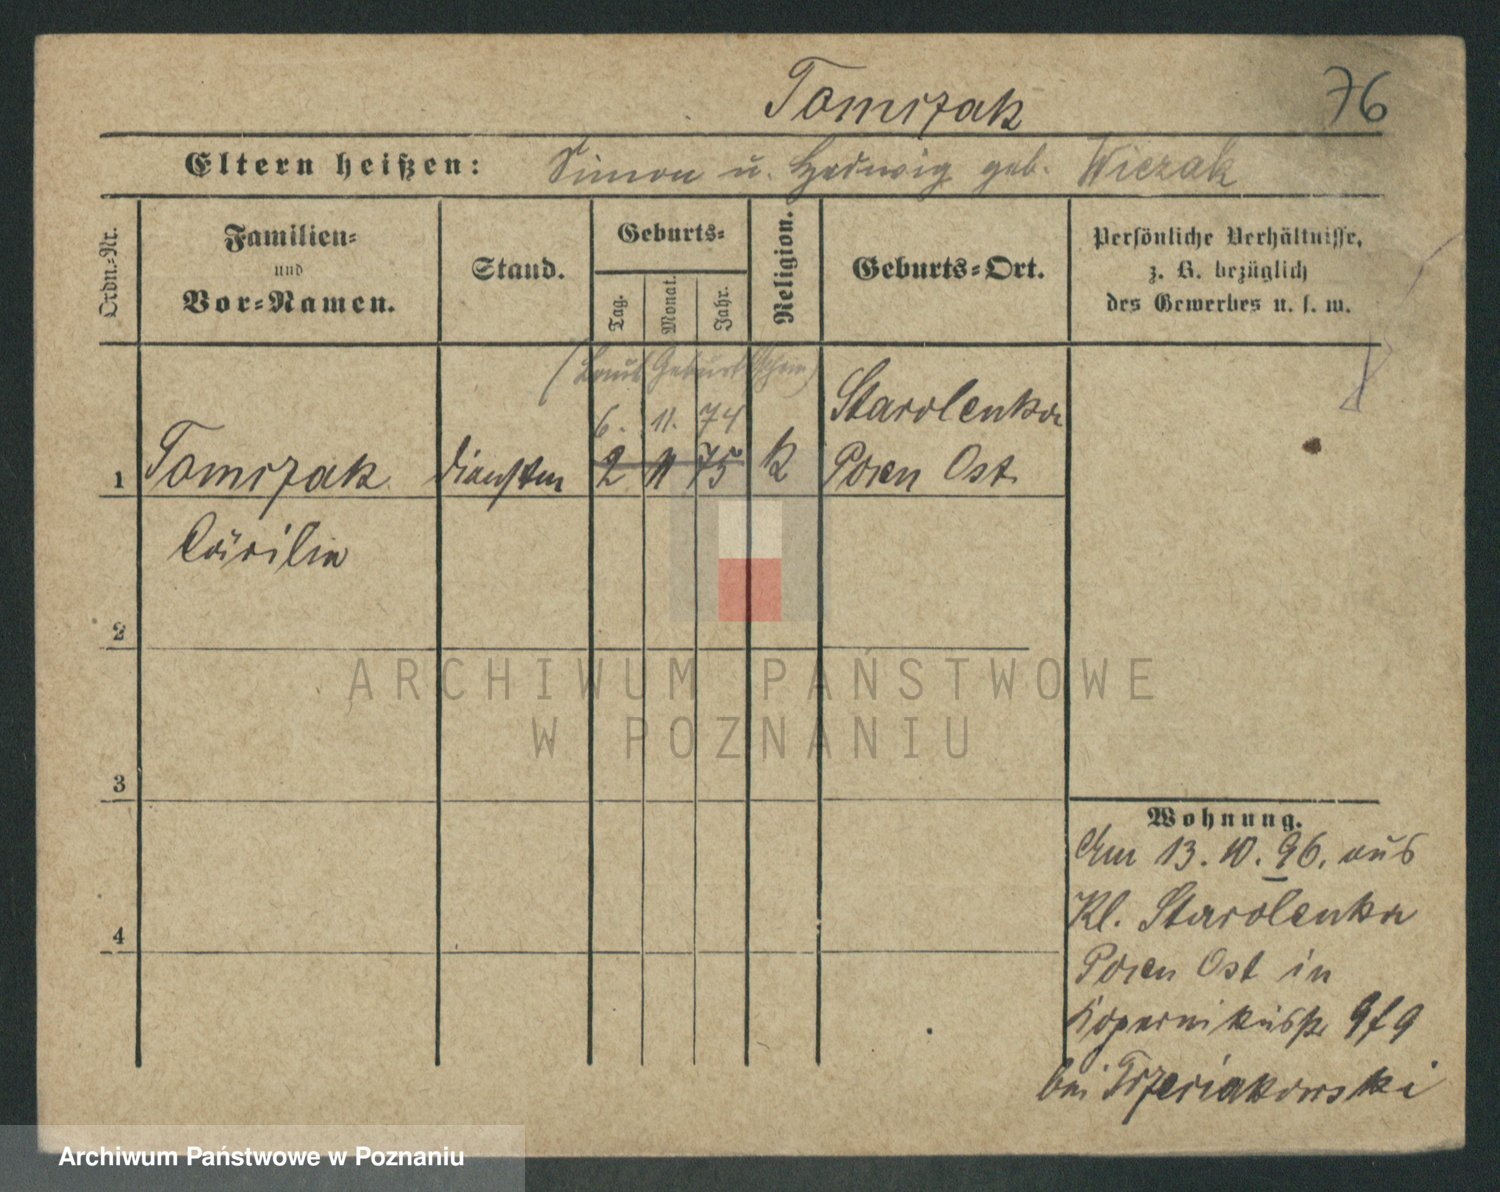 Tomczak
76
Eltern heißen: Simon u. Hedwig geb. Wiczak
Ordn.-Nr.
Familien-
und
Vor-Namen.
Stand.
Geburts-
Tag.
Monat.
Jahr.
Religion.
Geburts-Ort.
Persönliche Verhältnisse,
z. B. bezüglich
des Gewerbes u. s. w.
(Laut Geburtsschein)
6. 11. 74
Starolenka
1 Tomczak 2 11 75 K Posen Ost.
Cäcilie
2
3
4
Wohnung.
Am 13. 10. 96. aus
Kl. Starolenka
Posen Ost in
Kopernikusstr 9 f 9
bei
ARCHIWUM PAŃSTWOWE
W POZNANIU
Archiwum Państwowe w Poznaniu